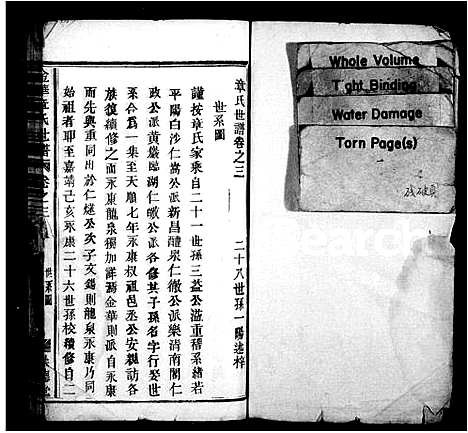 章氏世譜卷之三
二十八世孫一陽述梓
世系圖
謹按章氏家乘自二十一世孫三益公溢重稽系緒若
平陽白沙仁嵩公派新昌醴泉仁徹公派樂清南閣仁
政公派黃巖臨湖仁皦公派各修其子孫名字行娶世
系合為一集至天順七年永康叔祖邑丞公安親訪各
族復續修之而永康龍泉獨加詳焉金華則派自永康
而先與重同出於仁燧公次子文錫則龍泉永康乃同
始祖者耶至嘉靖己亥永康二十六世孫校續修自二
金華章氏世譜 卷之三
世系圖
Whole Volume
Tight Binding
Water Damage
Torn Page(s)
残破頁